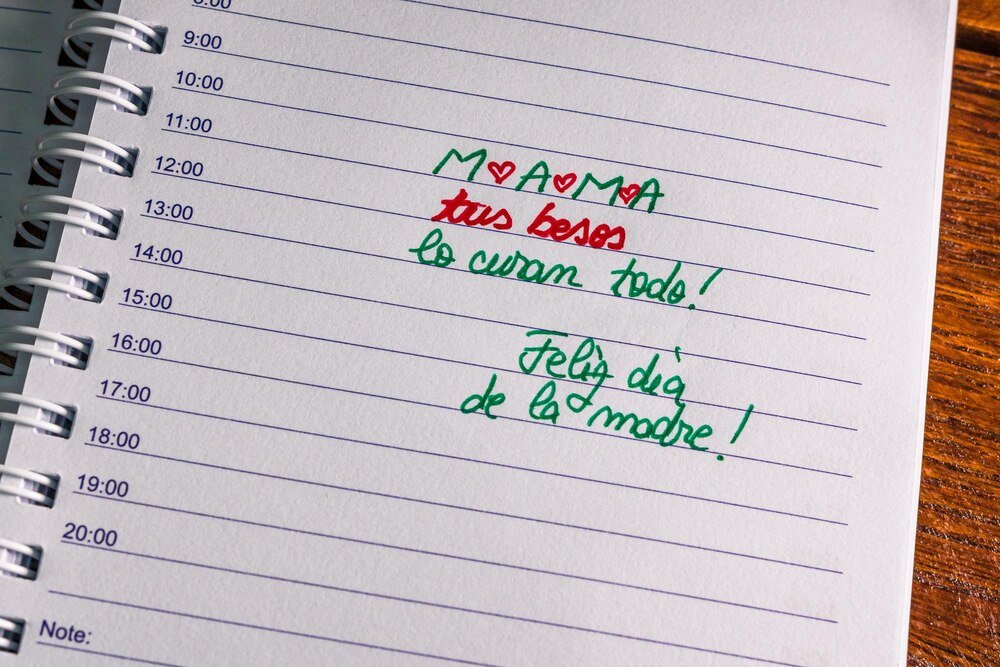 8:00
9:00
10:00
11:00
12:00
13:00
14:00
15:00
16:00
17:00
18:00
19:00
20:00
Note:
M♥A♥M♥A
tus besos
lo curan todo!
Feliz día
de la madre!